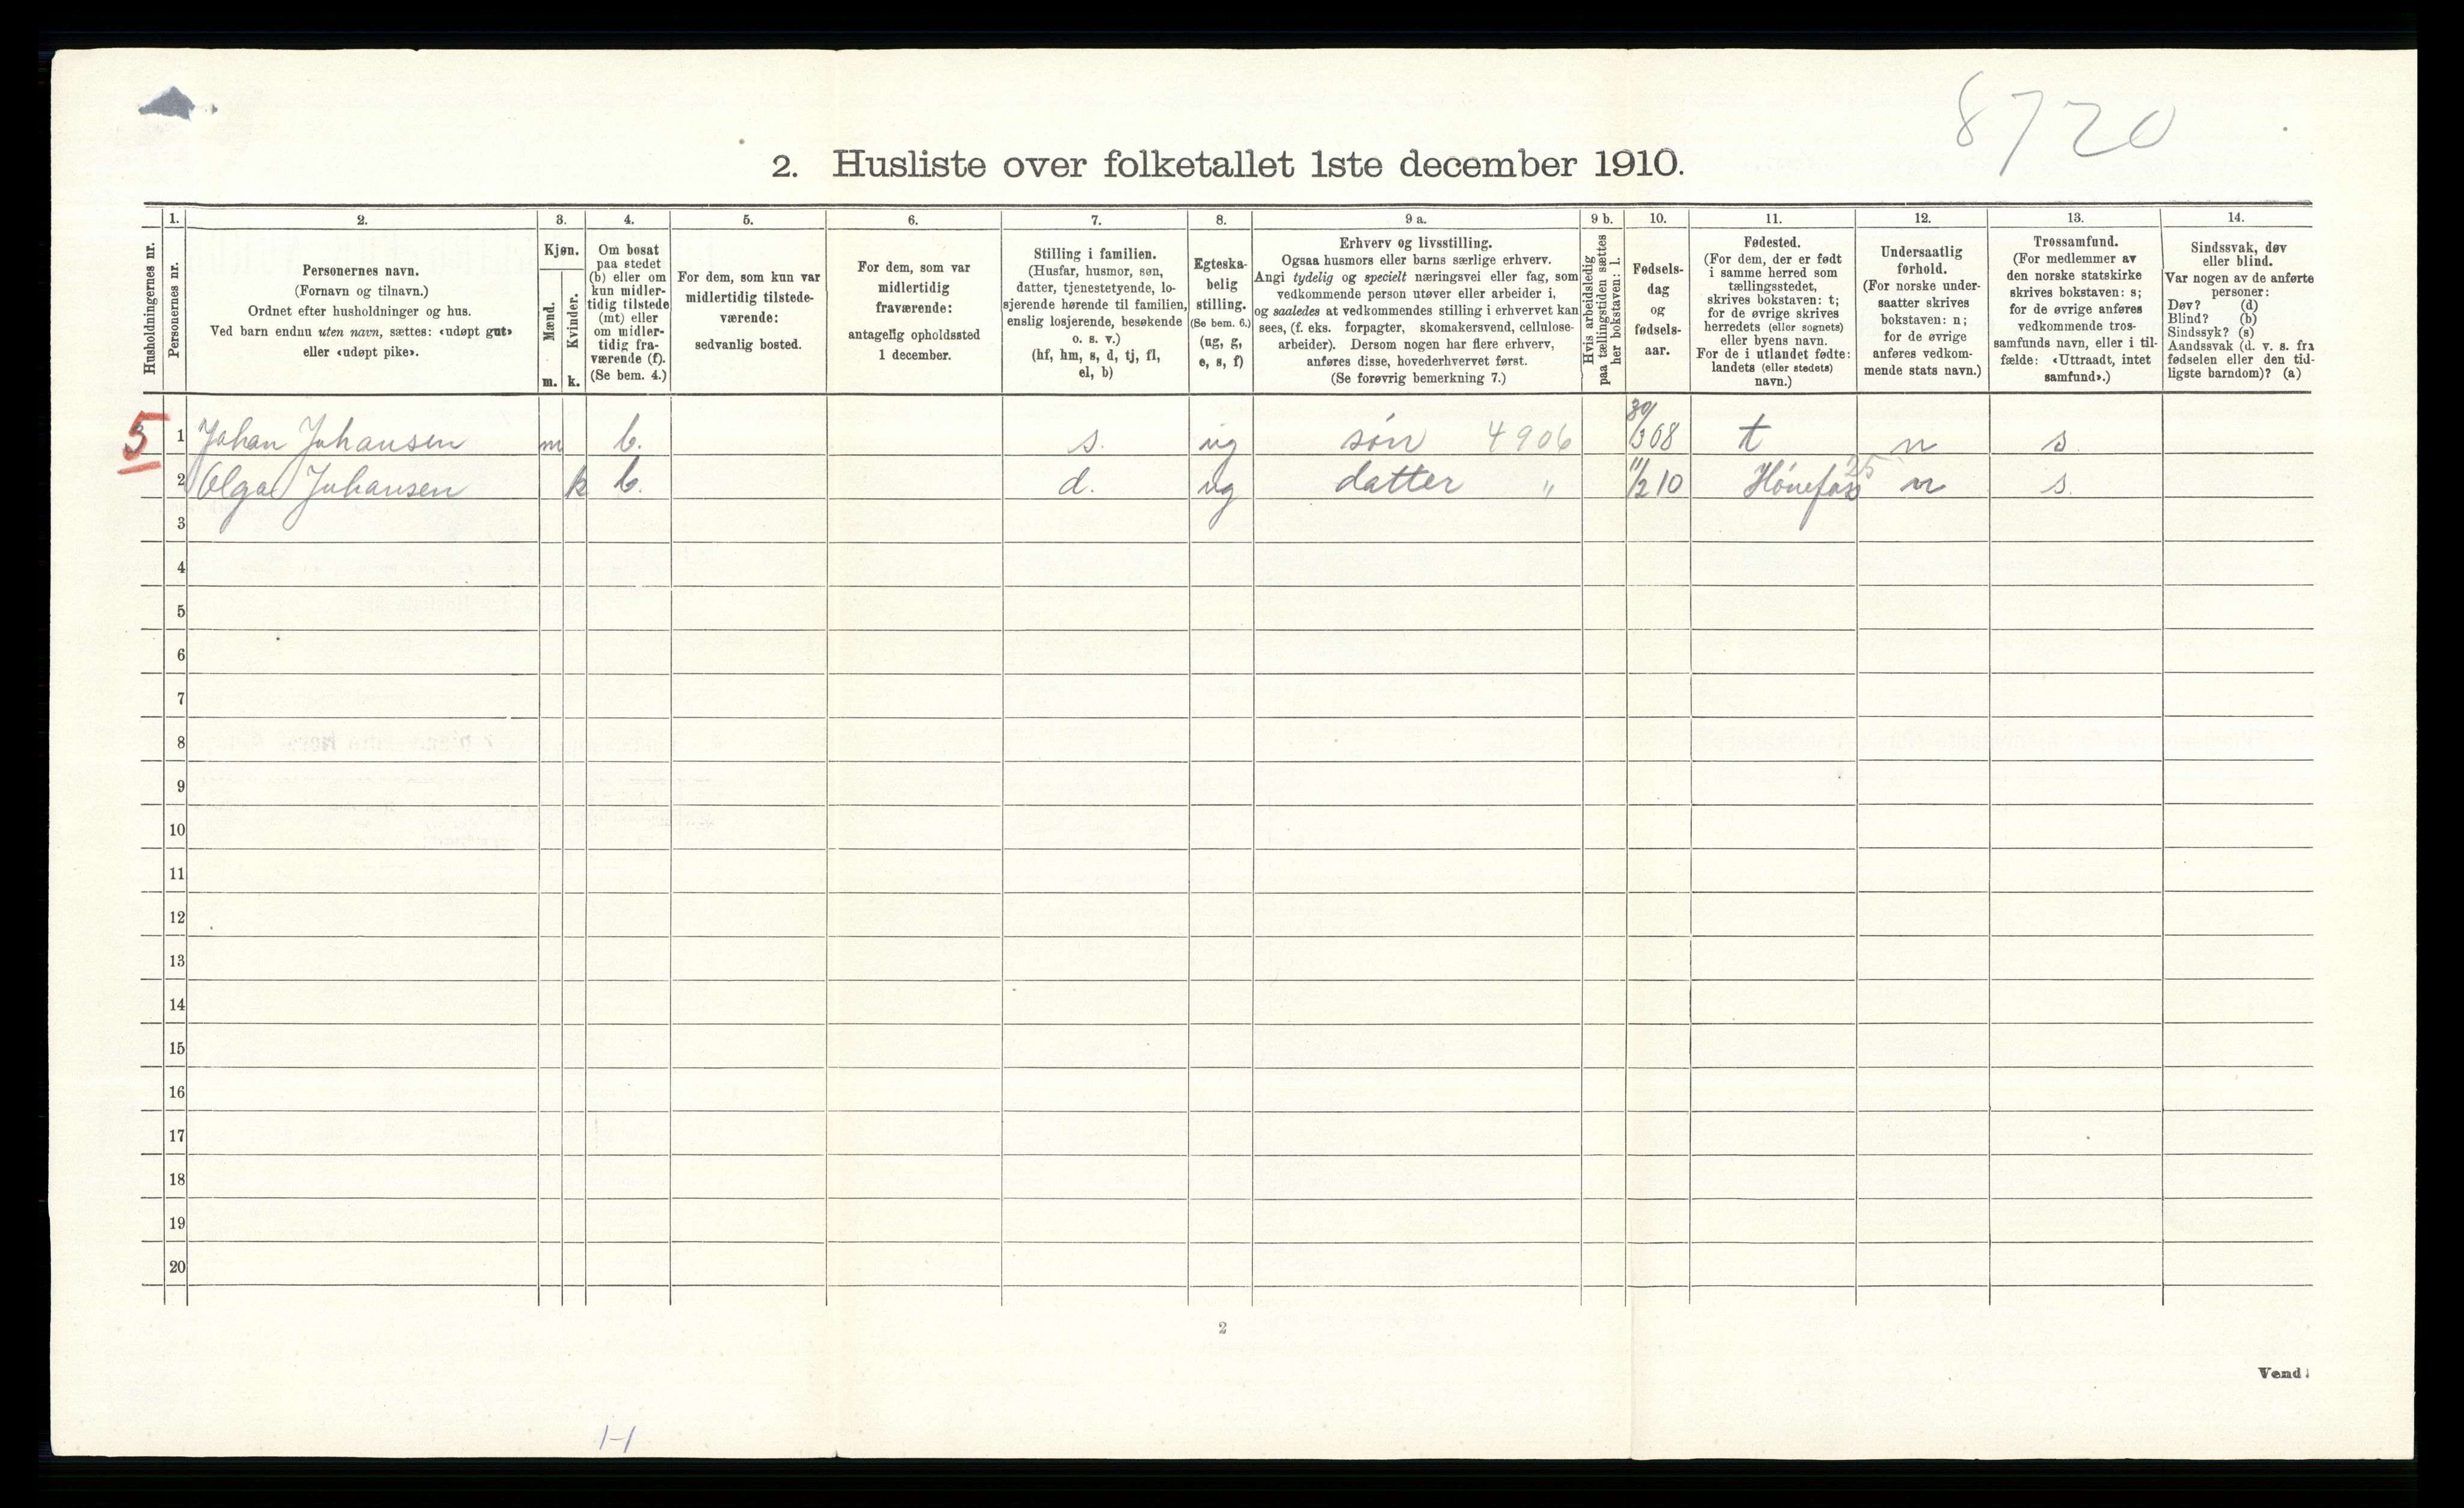 8720
2. Husliste over folketallet 1ste december 1910.
Husholdningernes nr.
1.
Personernes nr.
2.
Personernes navn.
(Fornavn og tilnavn.)
Ordnet efter husholdninger og hus.
Ved barn endnu uten navn, sættes: «udøpt gut»
eller «udøpt pike».
3.
Kjøn.
Mænd.
Kvinder.
m. k.
4.
Om bosat
paa stedet
(b) eller om
kun midler-
tidig tilstede
(mt) eller
om midler-
tidig fra-
værende (f).
(Se bem. 4.)
5.
For dem, som kun var
midlertidig tilstede-
værende:
sedvanlig bosted.
6.
For dem, som var
midlertidig
fraværende:
antagelig opholdssted
1 december.
7.
Stilling i familien.
(Husfar, husmor, søn,
datter, tjenestetyende, lo-
sjerende hørende til familien,
enslig losjerende, besøkende
o. s. v.)
(hf, hm, s, d, tj, fl,
el, b)
8.
Egteska-
belig
stilling.
(Se bem. 6.)
(ug, g,
e, s, f)
9 a.
Erhverv og livsstilling.
Ogsaa husmors eller barns særlige erhverv.
Angi tydelig og specielt næringsvei eller fag, som
vedkommende person utøver eller arbeider i,
og saaledes at vedkommendes stilling i erhvervet kan
sees, (f. eks. forpagter, skomakersvend, cellulose-
arbeider). Dersom nogen har flere erhverv,
anføres disse, hovederhvervet først.
(Se forøvrig bemerkning 7.)
9 b.
Hvis arbeidsledig
paa tællingstiden sættes
her bokstaven: l.
10.
Fødsels-
dag
og
fødsels-
aar.
11.
Fødested.
(For dem, der er født
i samme herred som
tællingsstedet,
skrives bokstaven: t;
for de øvrige skrives
herredets (eller sognets)
eller byens navn.
For de i utlandet fødte:
landets (eller stedets)
navn.)
12.
Undersaatlig
forhold.
(For norske under-
saatter skrives
bokstaven: n;
for de øvrige
anføres vedkom-
mende stats navn.)
13.
Trossamfund.
(For medlemmer av
den norske statskirke
skrives bokstaven: s;
for de øvrige anføres
vedkommende tros-
samfunds navn, eller i til-
fælde: «Uttraadt, intet
samfund».)
14.
Sindssvak, døv
eller blind.
Var nogen av de anførte
personer:
Døv? (d)
Blind? (b)
Sindssyk? (s)
Aandssvak (d. v. s. fra
fødselen eller den tid-
ligste barndom)? (a)
5 1 Johan Johansen m b. s. ug søn 4906 30/3 08 t n s.
2 Olga Johansen k b. d. ug datter " 11/2 10 Hønefoss 25 n s.
3
4
5
6
7
8
9
10
11
12
13
14
15
16
17
18
19
20
2
Vend!